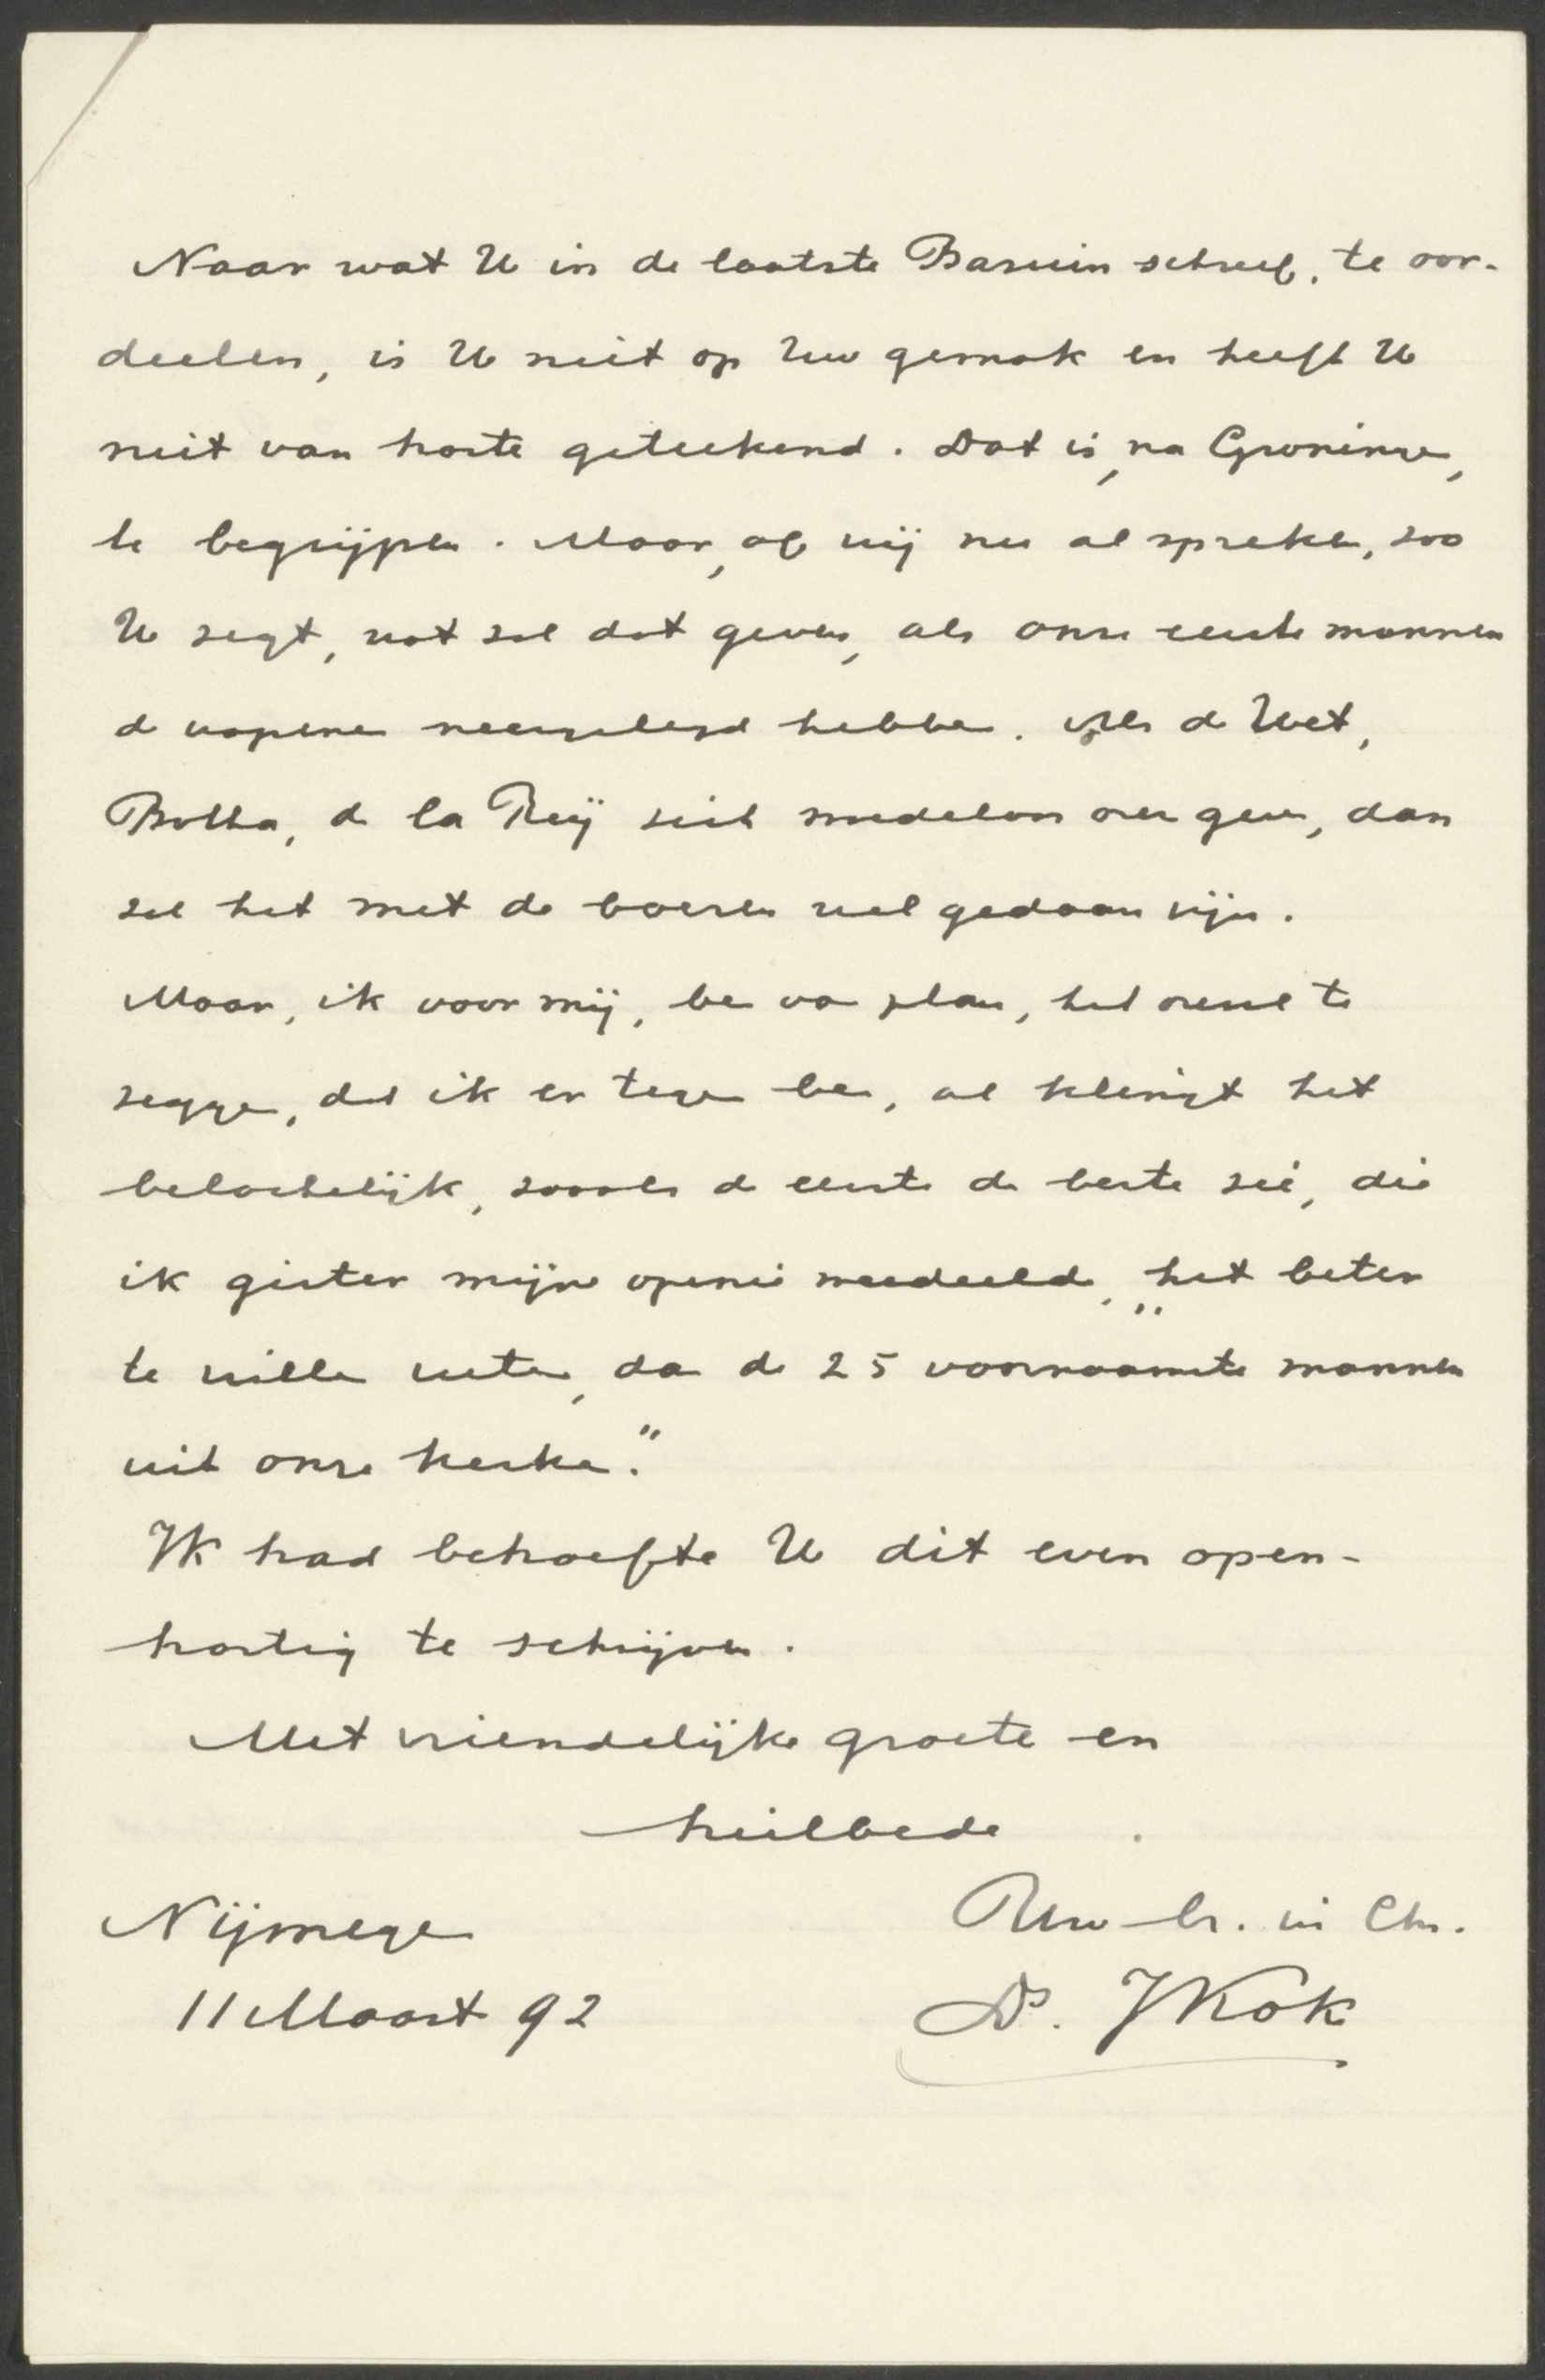 Naar wat U in de laatste Bazuin schreef, te oor-
deelen, is U niet op Uw gemak en heeft U
niet van harte geteekend. Dat is, na Groningen,
te begrijpen. Maar, of wij nu al spreken, zoo
U zegt, wat zal dat geven, als onze eerste mannen
de wapenen neergelegd hebben. Als de Wet,
Botha, de la Reÿ zich moedeloos overgeven, dan
zal het met de boeren wel gedaan zijn.
Maar, ik voor mij, ben van plan, het overal te
zeggen, dat ik er tegen ben, al klinkt het
belachelijk, zooals de eerste de beste zei, die
ik gister mijne opinie meedeelde, „het beter
te willen weten, dan de 25 voornaamste mannen
uit onze kerken."
Ik had behoefte U dit even open-
hartig te schrijven.
Met vriendelijke groete en
heilbede
Nijmegen
Uw br. in Chr.
11 Maart 92
Ds. JKok